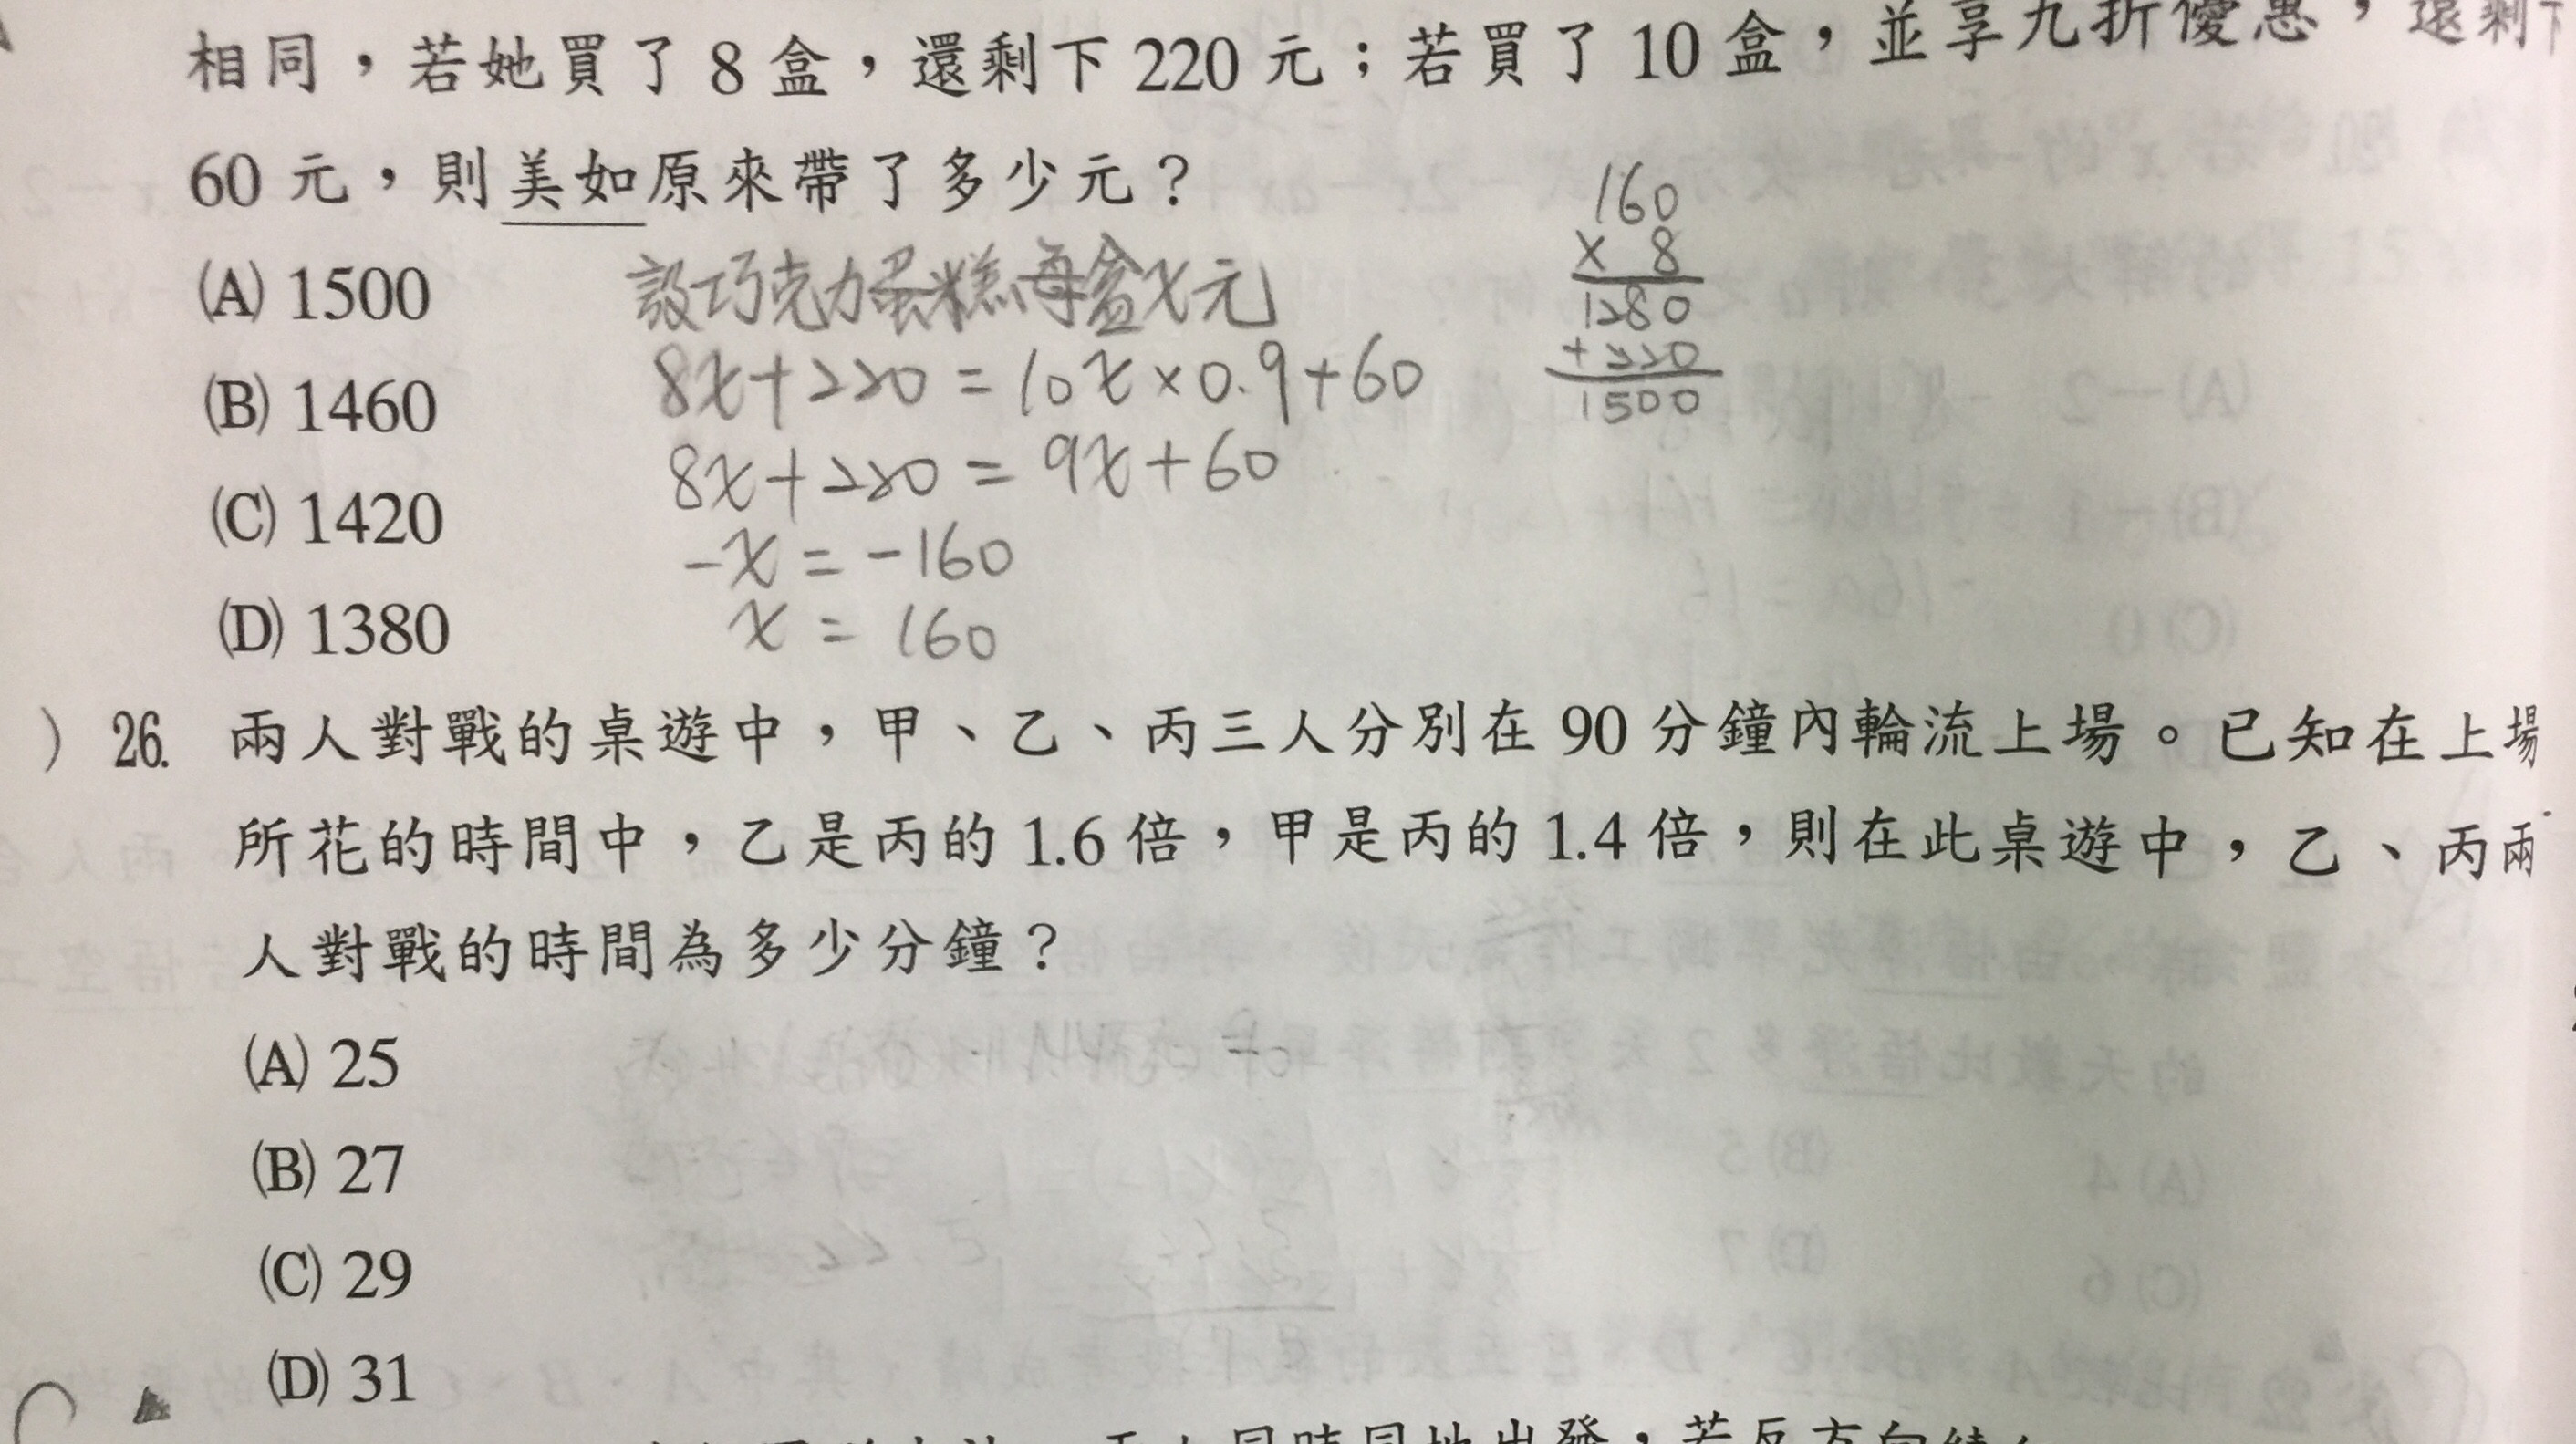 相同，若她買了 8 盒，還剩下 220 元；若買了 10 盒，並享九折優惠，還剩下
60 元，則美如原來帶了多少元？
(A) 1500
(B) 1460
(C) 1420
(D) 1380
設巧克力蛋糕每盒x元
8x+220 = 10x×0.9+60
8x+220 = 9x+60
-x = -160
x = 160
160
× 8
1280
+ 220
1500
) 26. 兩人對戰的桌遊中，甲、乙、丙三人分別在 90 分鐘內輪流上場。已知在上場
所花的時間中，乙是丙的 1.6 倍，甲是丙的 1.4 倍，則在此桌遊中，乙、丙兩
人對戰的時間為多少分鐘？
(A) 25
(B) 27
(C) 29
(D) 31
同時同地出發，若反方向繞